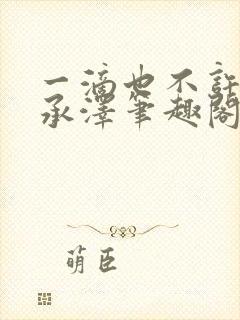 一滴也不許
承澤筆趣閣
萌臣